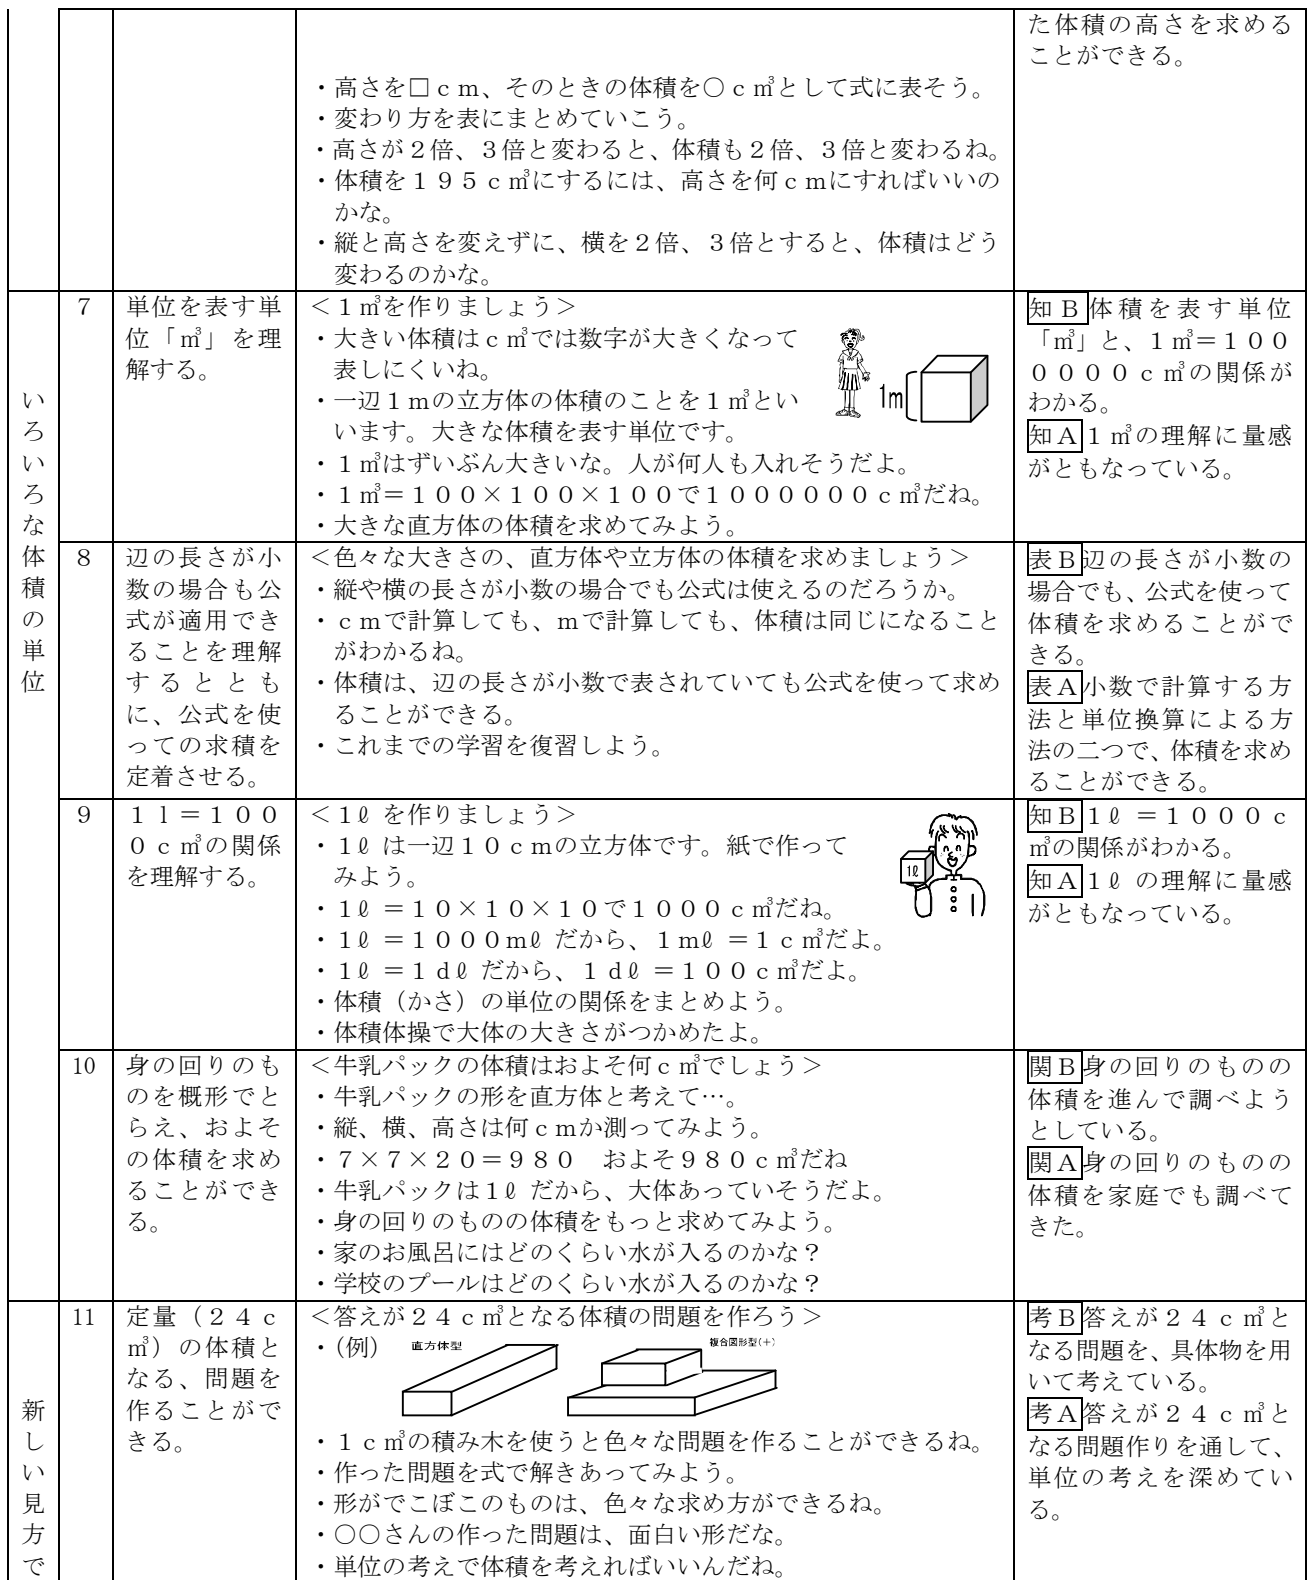 た体積の高さを求める
ことができる。
・高さを□ｃｍ、そのときの体積を○ｃ㎥として式に表そう。
・変わり方を表にまとめていこう。
・高さが２倍、３倍と変わると、体積も２倍、３倍と変わるね。
・体積を１９５ｃ㎥にするには、高さを何ｃｍにすればいいの
かな。
・縦と高さを変えずに、横を２倍、３倍とすると、体積はどう
変わるのかな。
いろいろな体積の単位
7
単位を表す単
位「㎥」を理
解する。
＜１㎥を作りましょう＞
・大きい体積はｃ㎥では数字が大きくなって
表しにくいね。
・一辺１ｍの立方体の体積のことを１㎥とい
います。大きな体積を表す単位です。
・１㎥はずいぶん大きいな。人が何人も入れそうだよ。
・１㎥＝１００×１００×１００で１００００００ｃ㎥だね。
・大きな直方体の体積を求めてみよう。
1m
知Ｂ体積を表す単位
「㎥」と、１㎥＝１００
００００ｃ㎥の関係が
わかる。
知Ａ１㎥の理解に量感
がともなっている。
8
辺の長さが小
数の場合も公
式が適用でき
ることを理解
するととも
に、公式を使
っての求積を
定着させる。
＜色々な大きさの、直方体や立方体の体積を求めましょう＞
・縦や横の長さが小数の場合でも公式は使えるのだろうか。
・ｃｍで計算しても、ｍで計算しても、体積は同じになること
がわかるね。
・体積は、辺の長さが小数で表されていても公式を使って求め
ることができる。
・これまでの学習を復習しよう。
表Ｂ辺の長さが小数の
場合でも、公式を使って
体積を求めることがで
きる。
表Ａ小数で計算する方
法と単位換算による方
法の二つで、体積を求め
ることができる。
9
１ｌ＝１００
０ｃ㎥の関係
を理解する。
＜１ℓ を作りましょう＞
・１ℓ は一辺１０ｃｍの立方体です。紙で作って
みよう。
・１ℓ ＝１０×１０×１０で１０００ｃ㎥だね。
・１ℓ ＝１０００ｍℓ だから、１ｍℓ ＝１ｃ㎥だよ。
・１ℓ ＝１ｄℓ だから、１ｄℓ ＝１００ｃ㎥だよ。
・体積（かさ）の単位の関係をまとめよう。
・体積体操で大体の大きさがつかめたよ。
1ℓ
知Ｂ１ℓ ＝１０００ｃ
㎥の関係がわかる。
知Ａ１ℓ の理解に量感
がともなっている。
10
身の回りのも
のを概形でと
らえ、およそ
の体積を求め
ることができ
る。
＜牛乳パックの体積はおよそ何ｃ㎥でしょう＞
・牛乳パックの形を直方体と考えて…。
・縦、横、高さは何ｃｍか測ってみよう。
・７×７×２０＝９８０　およそ９８０ｃ㎥だね
・牛乳パックは１ℓ だから、大体あっていそうだよ。
・身の回りのものの体積をもっと求めてみよう。
・家のお風呂にはどのくらい水が入るのかな？
・学校のプールはどのくらい水が入るのかな？
関Ｂ身の回りのものの
体積を進んで調べよう
としている。
関Ａ身の回りのものの
体積を家庭でも調べて
きた。
新しい見方で
11
定量（２４ｃ
㎥）の体積と
なる、問題を
作ることがで
きる。
＜答えが２４ｃ㎥となる体積の問題を作ろう＞
・(例)
直方体型
複合図形型(+)
・１ｃ㎥の積み木を使うと色々な問題を作ることができるね。
・作った問題を式で解きあってみよう。
・形がでこぼこのものは、色々な求め方ができるね。
・○○さんの作った問題は、面白い形だな。
・単位の考えで体積を考えればいいんだね。
考Ｂ答えが２４ｃ㎥と
なる問題を、具体物を用
いて考えている。
考Ａ答えが２４ｃ㎥と
なる問題作りを通して、
単位の考えを深めてい
る。